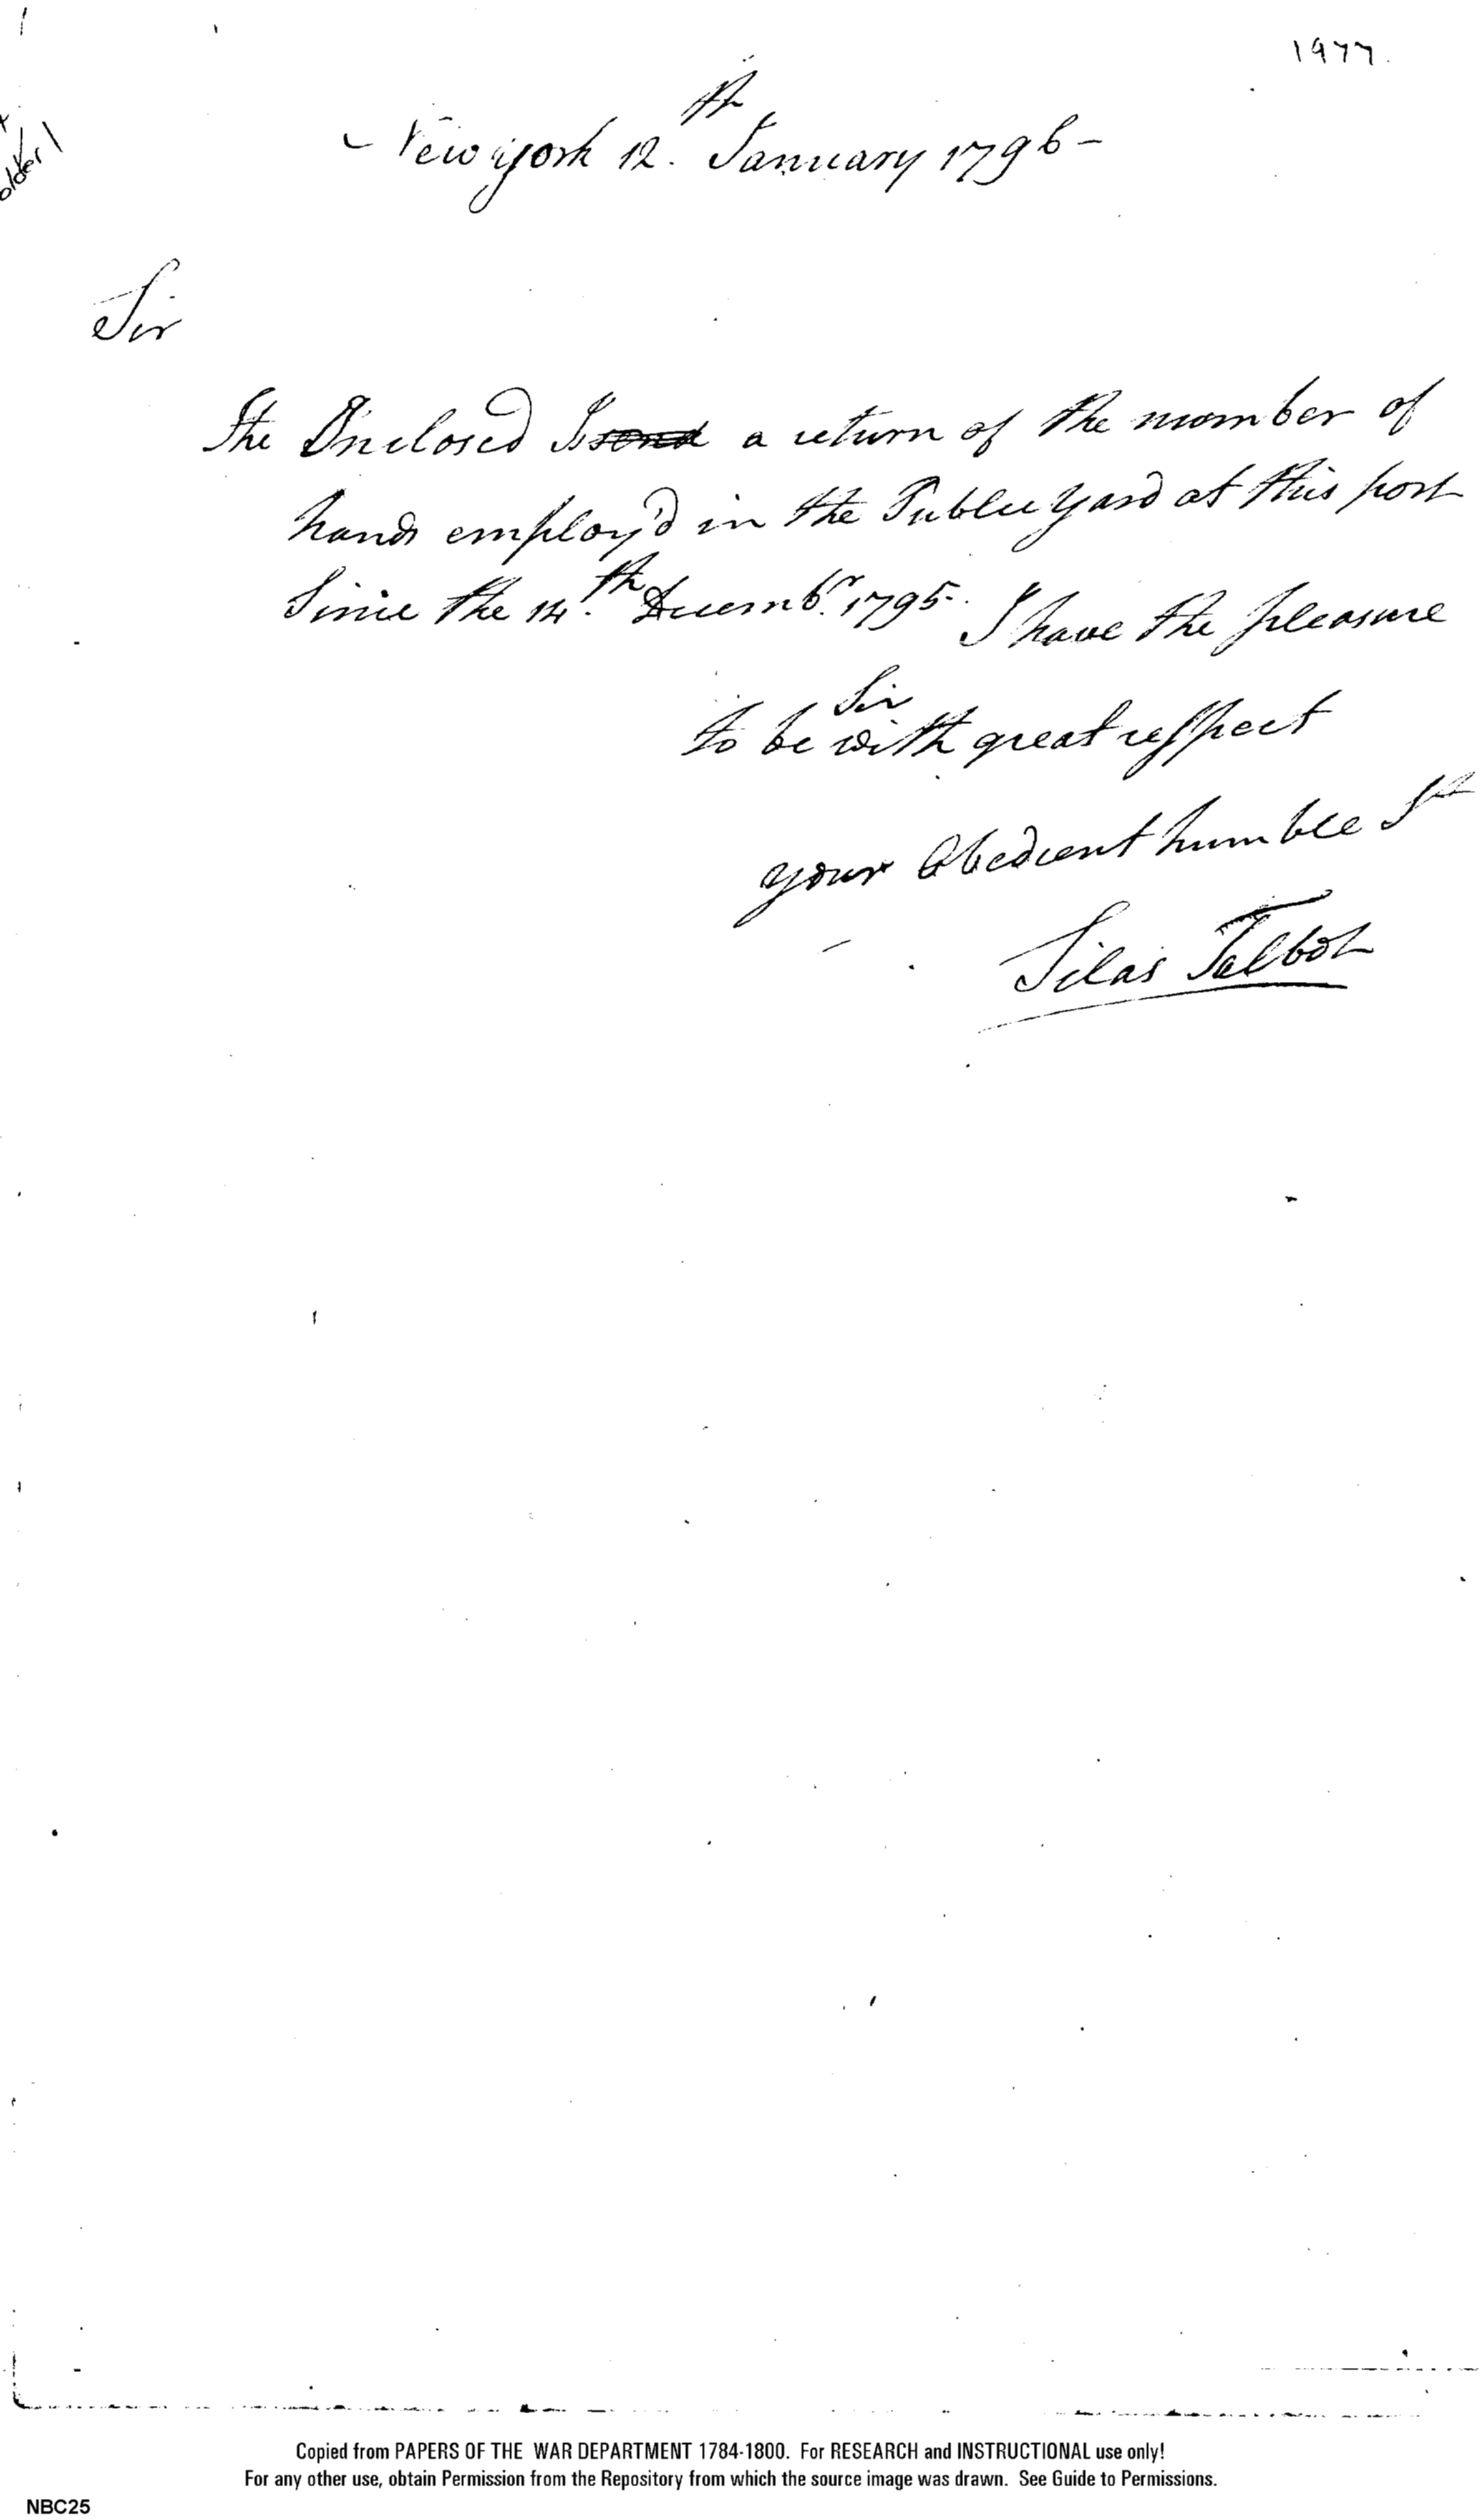 1977.
New york 12.th January 1796-
Sir
The Inclosed Is send a return of the number of
hands employ'd in the Public yard at this port
Since the 14.th Decembr. 1795. I have the pleasure
Sir
to be with great respect
your Obedient humble St
Silas Talbot
Copied from PAPERS OF THE WAR DEPARTMENT 1784-1800. For RESEARCH and INSTRUCTIONAL use only!
For any other use, obtain Permission from the Repository from which the source image was drawn. See Guide to Permissions.
NBC25